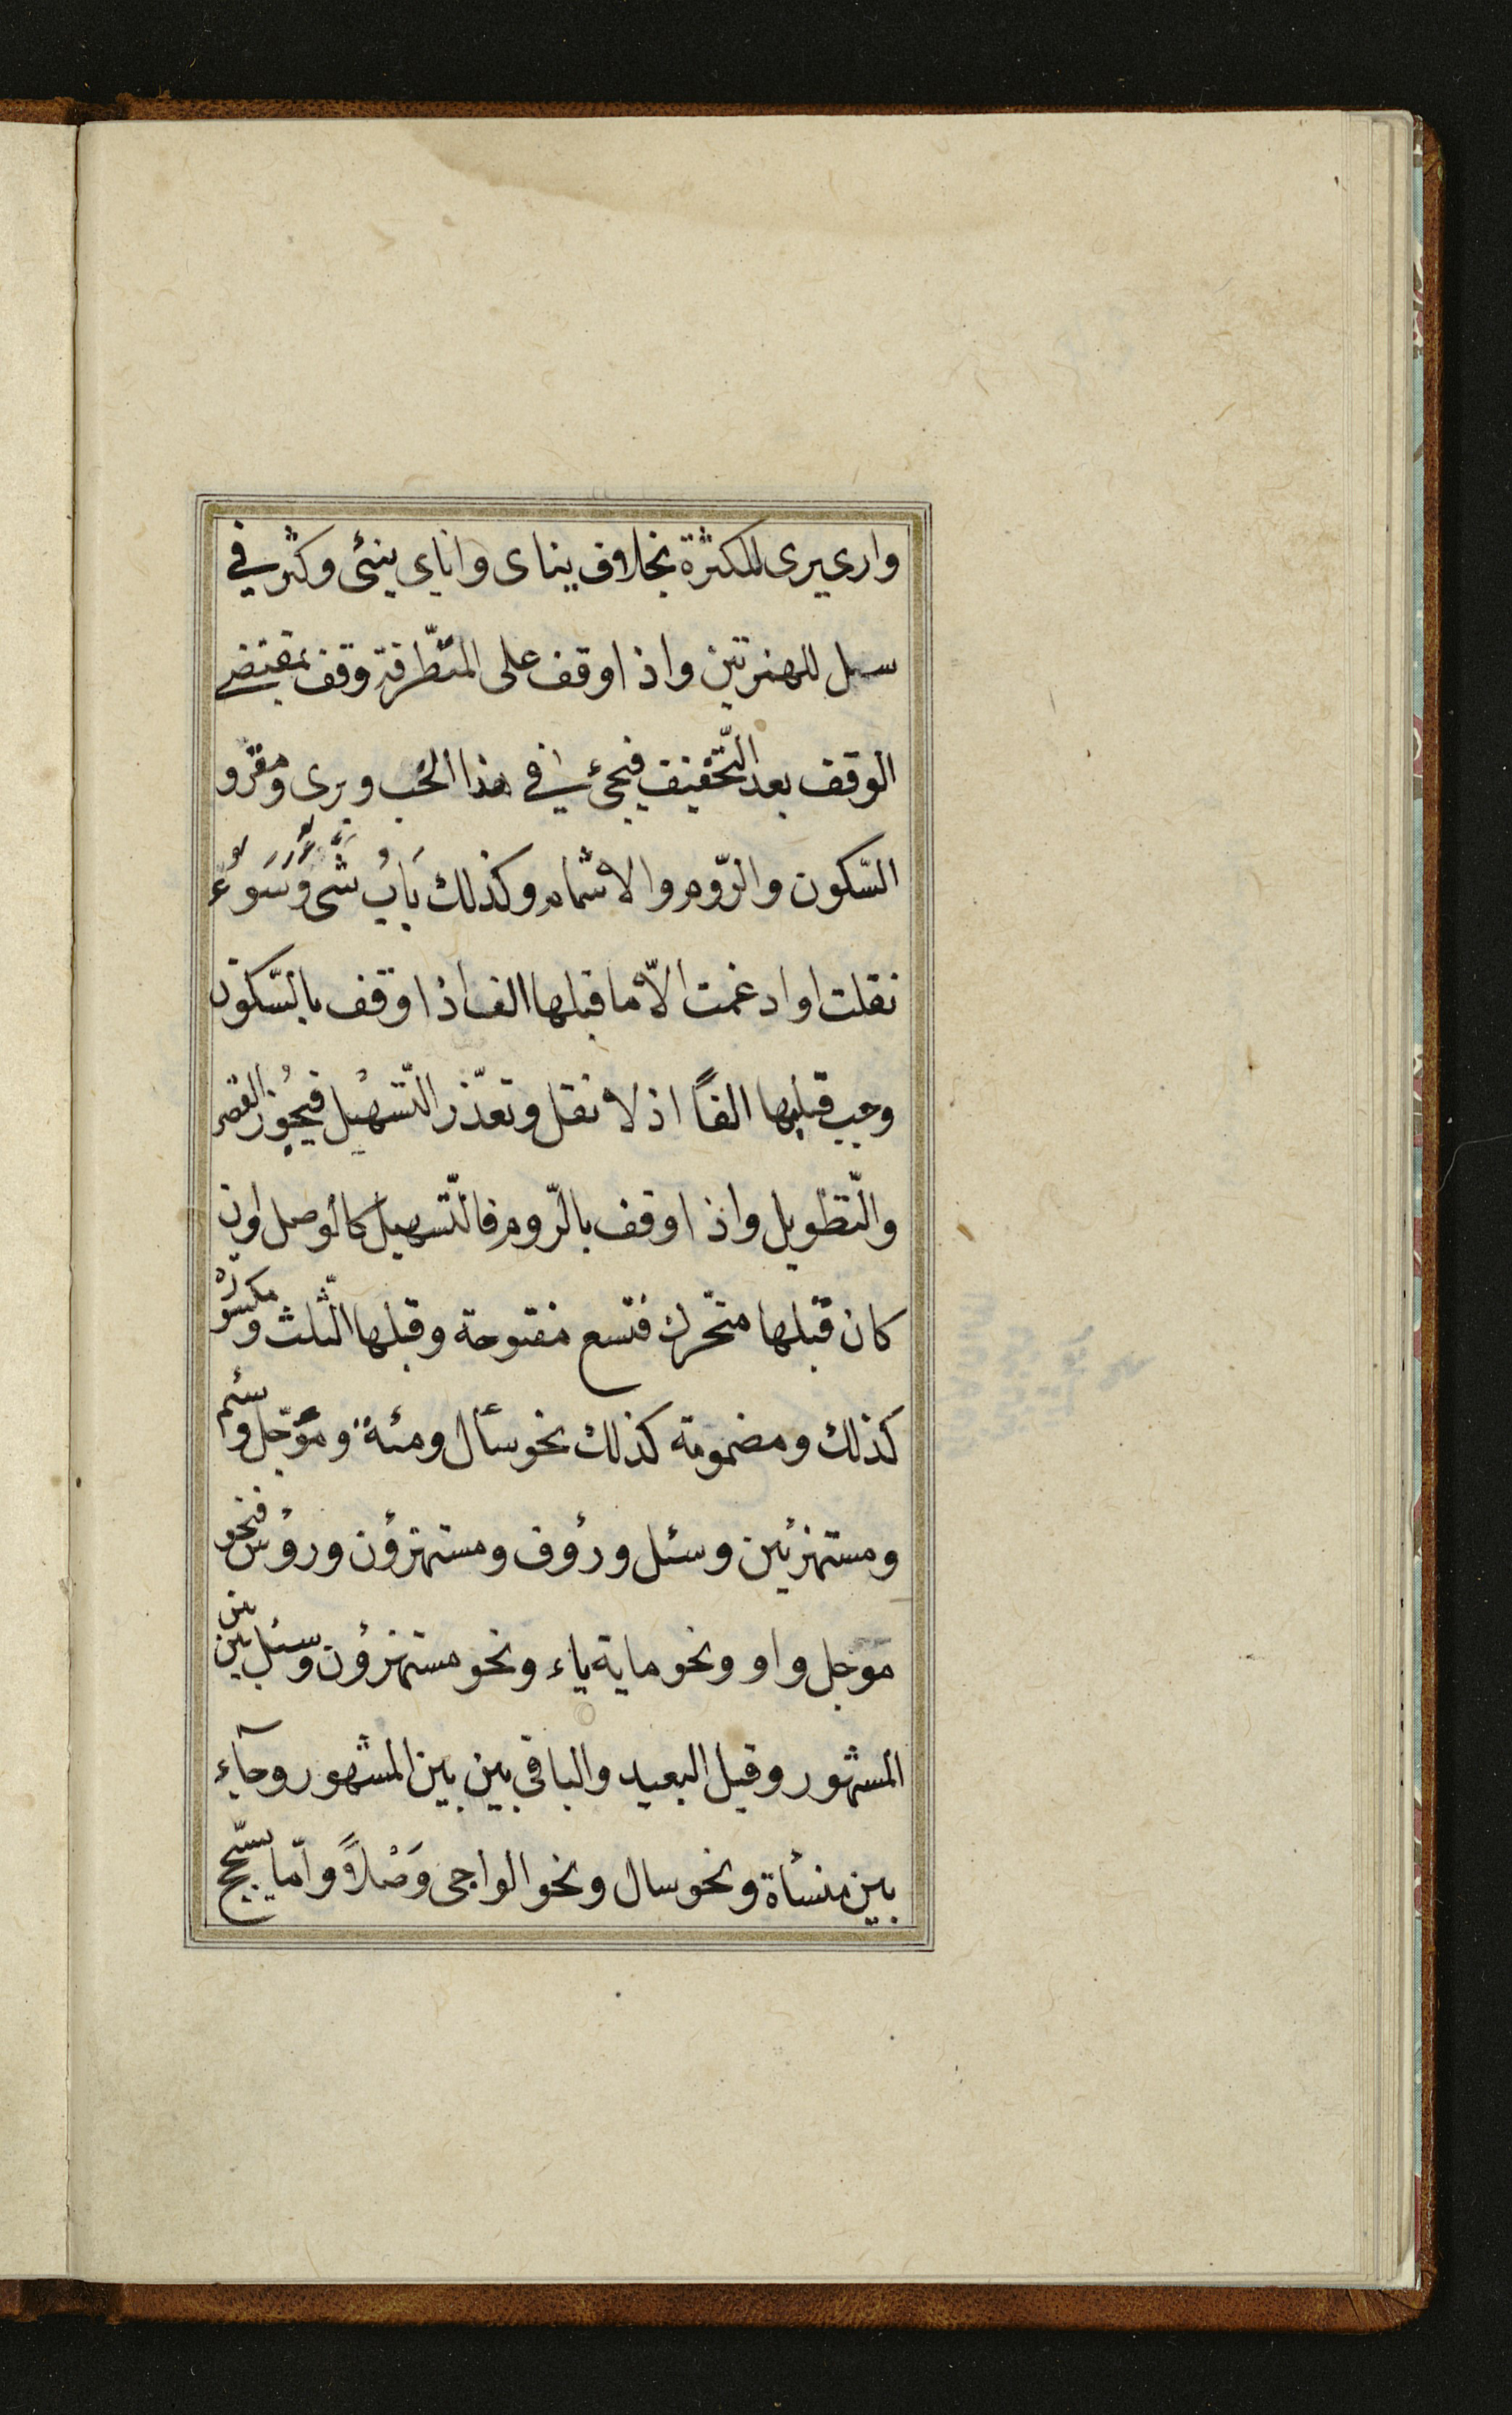 وارى يرى للكثرة بخلاف يناى واناى ينئى وكثر في
سل للهمزتين واذا وقف على المتطّرفة وقف بمقتضى
الوقف بعد التّخفيف فيجئ في هذا الخب وبرى ومقرو
السّكون والرّوم والاشمام وكذلك بَابُ شىُ وسَوُء
نقلت او ادغمت الاّ ما قبلها الف اذا وقف بالسّكون
وجب قبلها الفاً اذ لا نقل وتعذّر التّسهيل فيجُوز القصر
والتّطويل واذا وقف بالرّوم فالتّسهيل كالوصل وان
كان قبلها متحّرك فتسع مفتوحة وقبلها الثّلث ومكسورة
كذلك ومضمومة كذلك نحو سأل ومئة ومؤجّل وسئم
ومستهزئين وسئل ورؤف ومستهزؤن ورؤس فنحو
موجل واو ونحو ماية ياء ونحو مستهزؤن وسئل بين بين
المشهور وقيل البعيد والباقي بين بين المشهور وجآء
بين منسأة ونحو سال ونحو الواجى وَصْلاً وامّا يشّجج